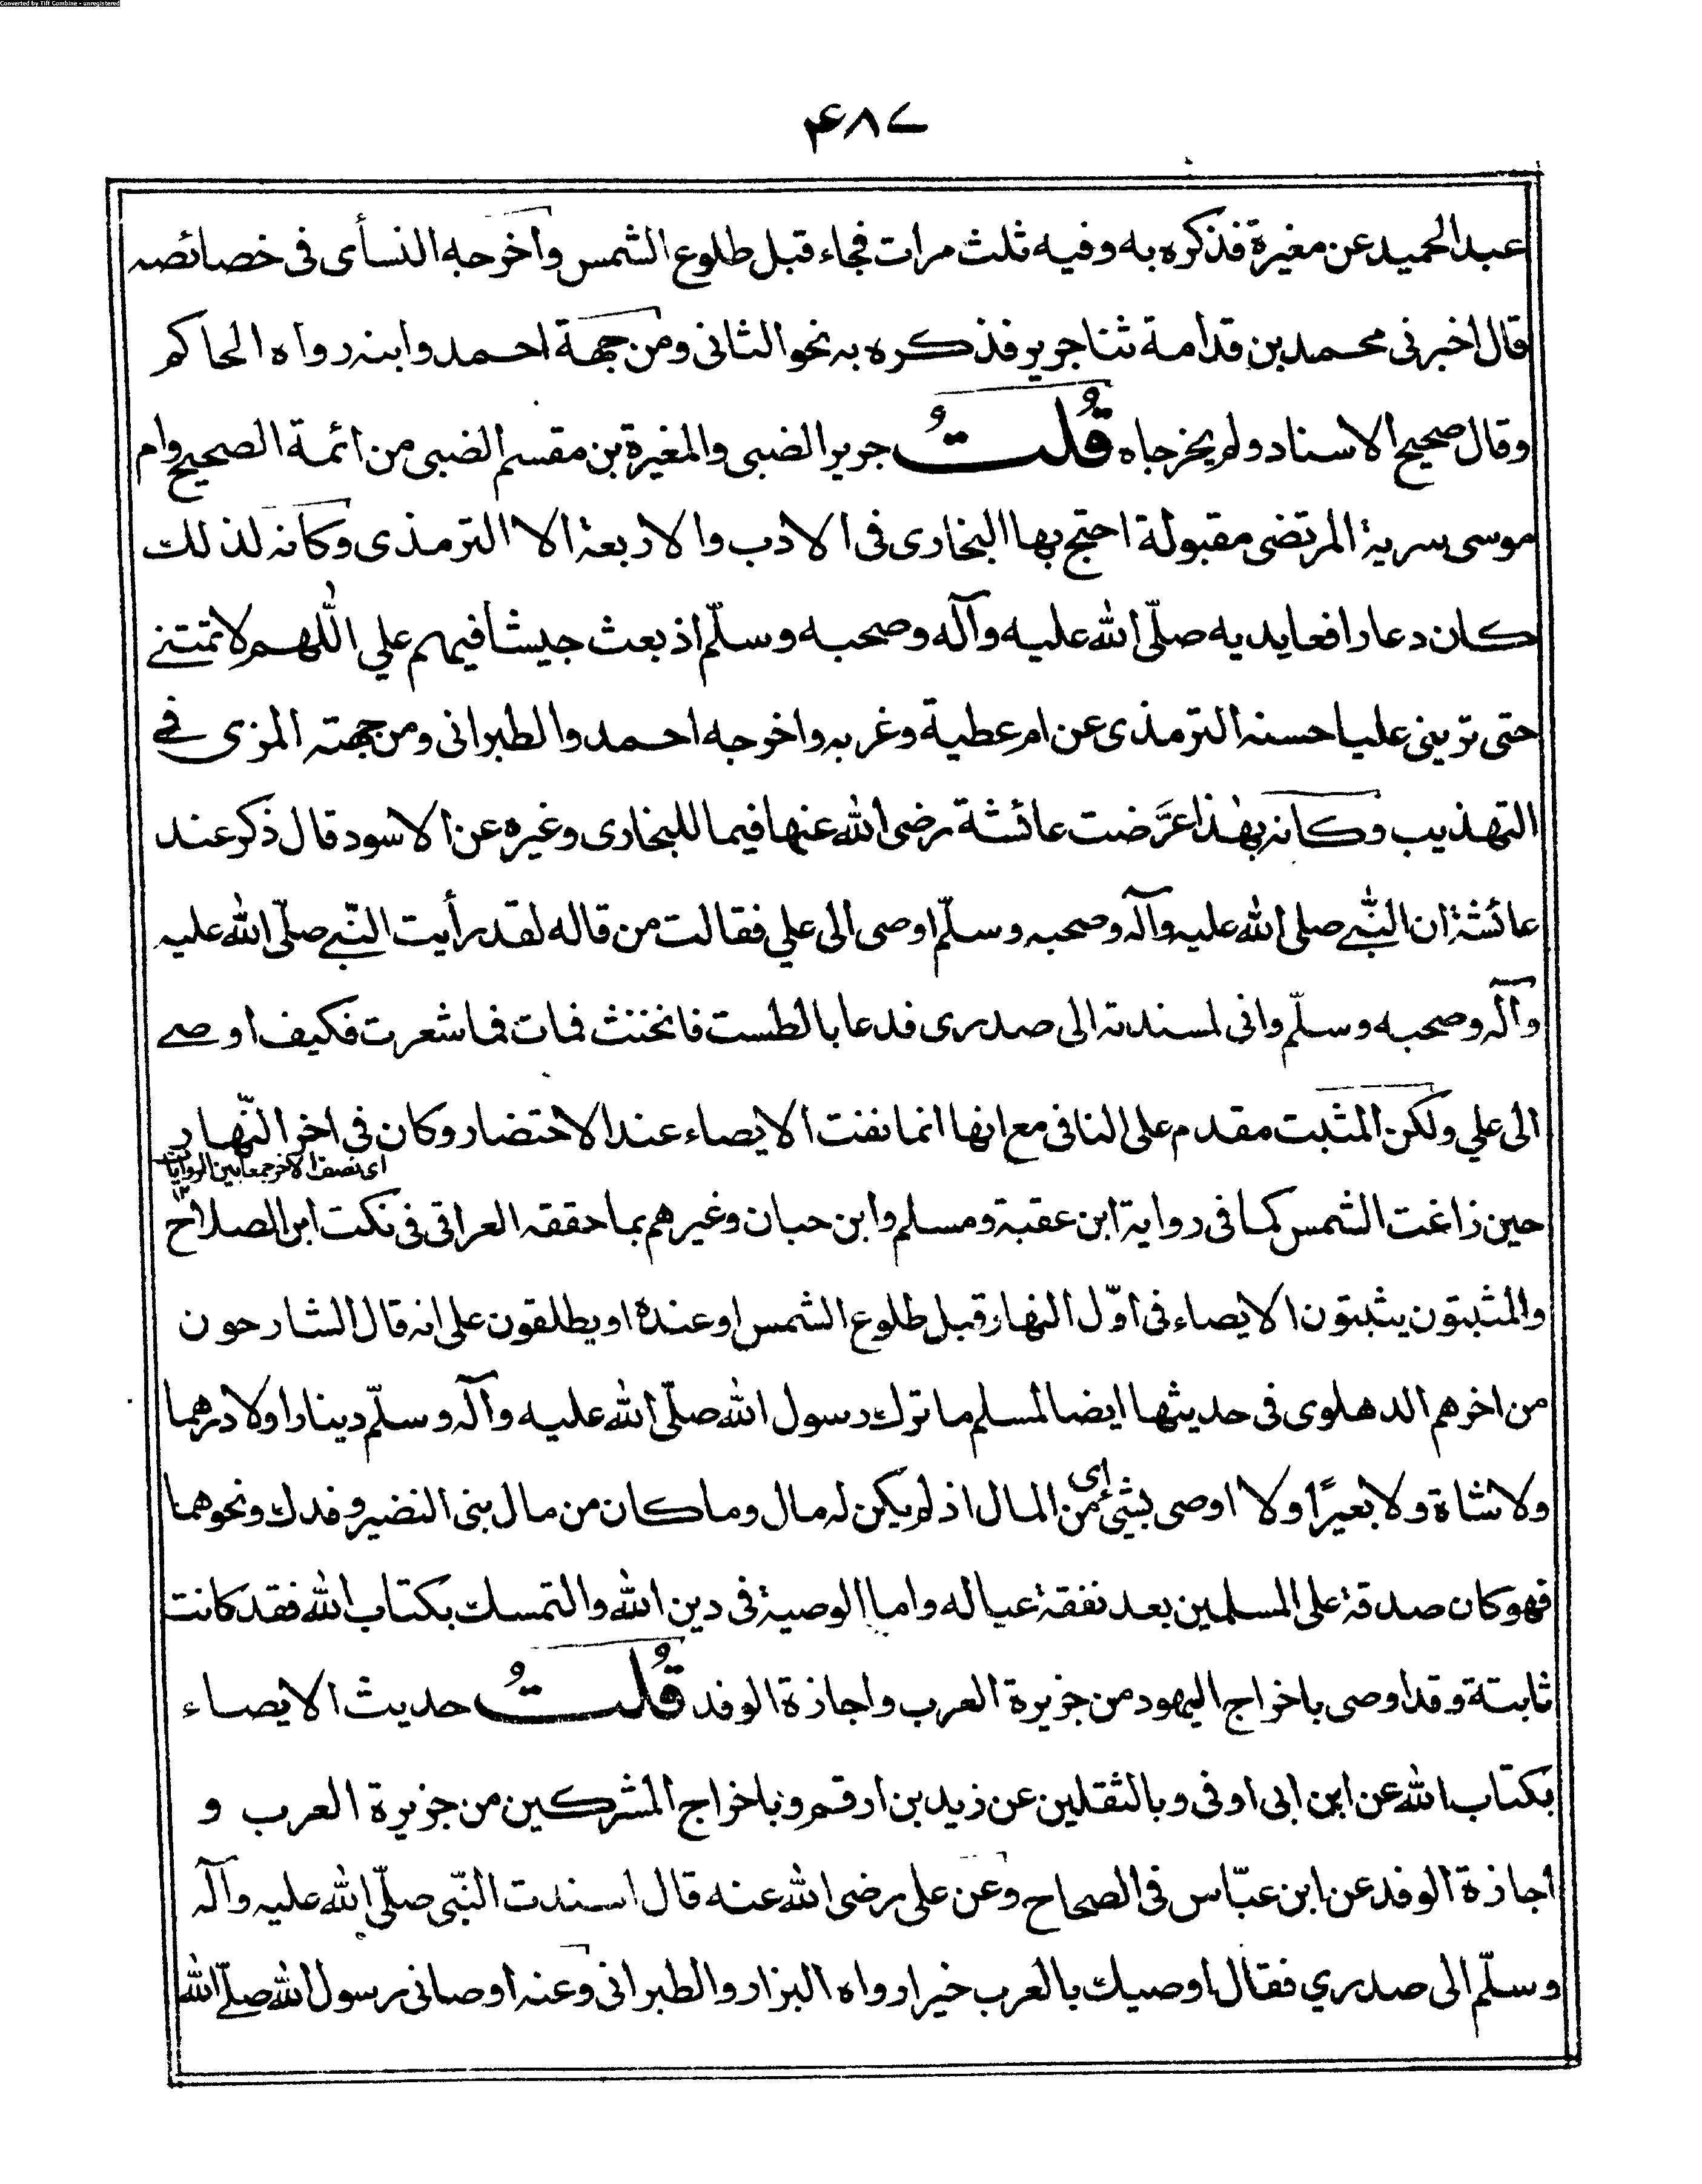 Converted by Tiff Combine - unregistered
۴۸۷
عبد الحميد عن مغيرة فذكره به وفيه ثلث مرات فجاء قبل طلوع الشمس واخرجه النسأى فى خصائصه
قال اخبرنى محمد بن قدامة ثنا جرير فذكره به نحو الثانى ومن جهة احمد وابنه رواه الحاكم
وقال صحيح الاسناد ولم يخرجاه قُلتُ جرير الضبى والمغيرة بن مقسم الضبى من ائمة الصحيح وام
موسى سرية المرتضى مقبولة احتج بها البخارى فى الادب والاربعة الا الترمذى وكانه لذلك
كان دعا رافعا يديه صلّى الله عليه وآله وصحبه وسلّم اذ بعث جيشا فيهم علي اللّهم لا تمتنے
حتى ترينى عليا حسنه الترمذى عن ام عطية وغربه واخرجه احمد والطبرانى ومن جهته المزى فے
التهذيب وكانه بهذا عرَّضت عائشة رضى الله عنها فيما للبخارى وغيره عن الاسود قال ذكر عند
عائشة ان النّبے صلى الله عليه وآله وصحبه وسلّم اوصى الى علي فقالت من قاله لقد رأيت النّبے صلّى الله عليه
وآله وصحبه وسلّم وانى لمسندته الى صدرى فدعا بالطست فانخنث فمات فما شعرت فكيف اوصے
الى علي ولكن المثبت مقدم على النافى مع انها انما نفت الايصاء عند الاحتضار وكان فى اخر النّهار
اى نصف الاخر جمعا بين الروايات ١٢
حين زاغت الشمس كما فى رواية ابن عقبة ومسلم وابن حبان وغيرهم بما حققه العراقى فى نكت ابن الصلاح
والمثبتون يثبتون الايصاء فى اوّل النهار قبل طلوع الشمس او عنده او يطلقون على انه قال الشارحون
من اخرهم الدهلوى فى حديثها ايضا لمسلم ما ترك رسول الله صلّى الله عليه وآله وسلّم دينارا ولا درهما
ولا شاة ولا بعيرًا ولا اوصى بشئ اى من المال اذ لم يكن له مال وما كان من مال بنى النضير وفدك ونحوهما
فهو كان صدقة على المسلمين بعد نفقة عياله واما الوصية فى دين الله والتمسك بكتاب الله فقد كانت
ثابتة وقد اوصى باخراج اليهود من جزيرة العرب واجازة الوفد قُلتُ حديث الايصاء
بكتاب الله عن ابن ابى اوفى وبالثقلين عن زيد بن ارقم وباخراج المشركين من جزيرة العرب و
اجازة الوفد عن ابن عبّاس فى الصحاح وعن على رضى الله عنه قال اسندت النّبى صلّى الله عليه وآله
وسلّم الى صدري فقال اوصيك بالعرب خيرا رواه البزار والطبرانى وعنه اوصانى رسول الله صلّى الله